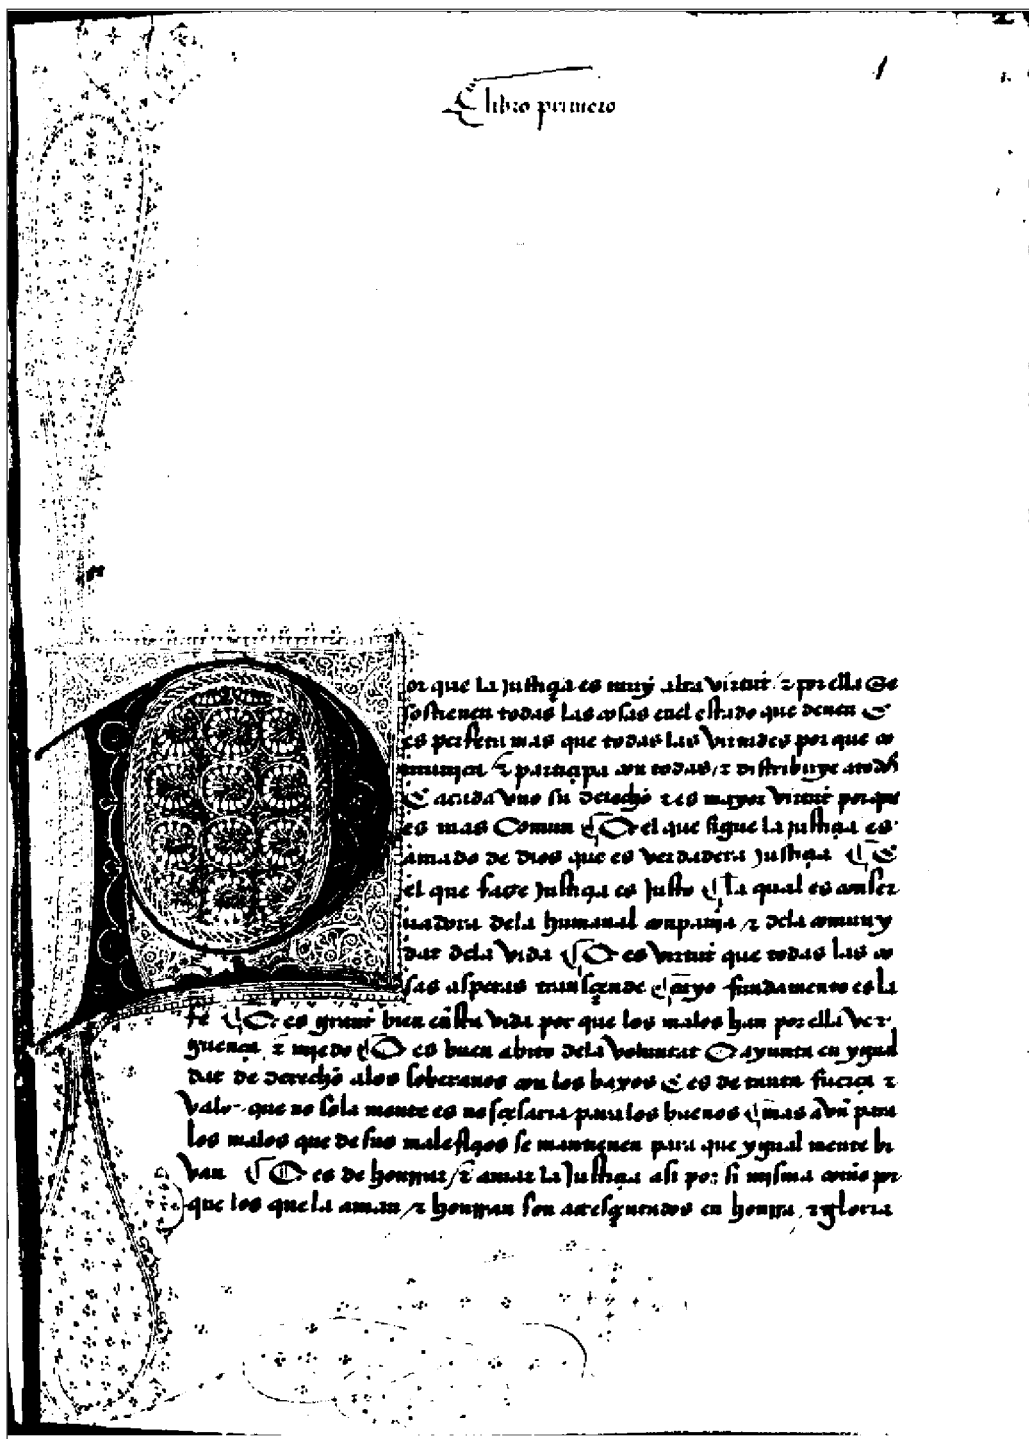 El libro primero
1
Por que la justiçia es muy alta virtut / ⁊ por ella Se
sostienen todas las cosas enel estado que deuen E
es perfeta mas que todas las virtudes por que co
munica / ⁊ partiçipa con todas / ⁊ distribuye atodos
E acada vno su derecho ⁊ es mayor virtut por que
es mas Comun ¶ O el que sigue la justiçia es
amado de dios que es verdadera justiçia ¶ E
el que faze justiçia es justo ¶ La qual es conser
uadora dela humanal conpañia / ⁊ dela comuny
dat dela vida ¶ O es virtut que todas las co
sas asperas transçende ¶ cuyo fundamento es la
fe ¶ O es grant bien enesta vida por que los malos han por ella ver
guença ⁊ miedo ¶ O es buen abito dela voluntat O ayunta en ygual
dat de derecho alos soberanos con los baxos E es de tanta fuerça ⁊
valor que no sola mente es nesçesaria para los buenos ¶ mas avn para
los malos que de sus malefiçios se mantienen para que ygual mente bi
van ¶ O es de honrrar / ⁊ amar la justiçia asi por si misma como por
que los que la aman / ⁊ honrran son acresçentados en honrra / ⁊ gloria